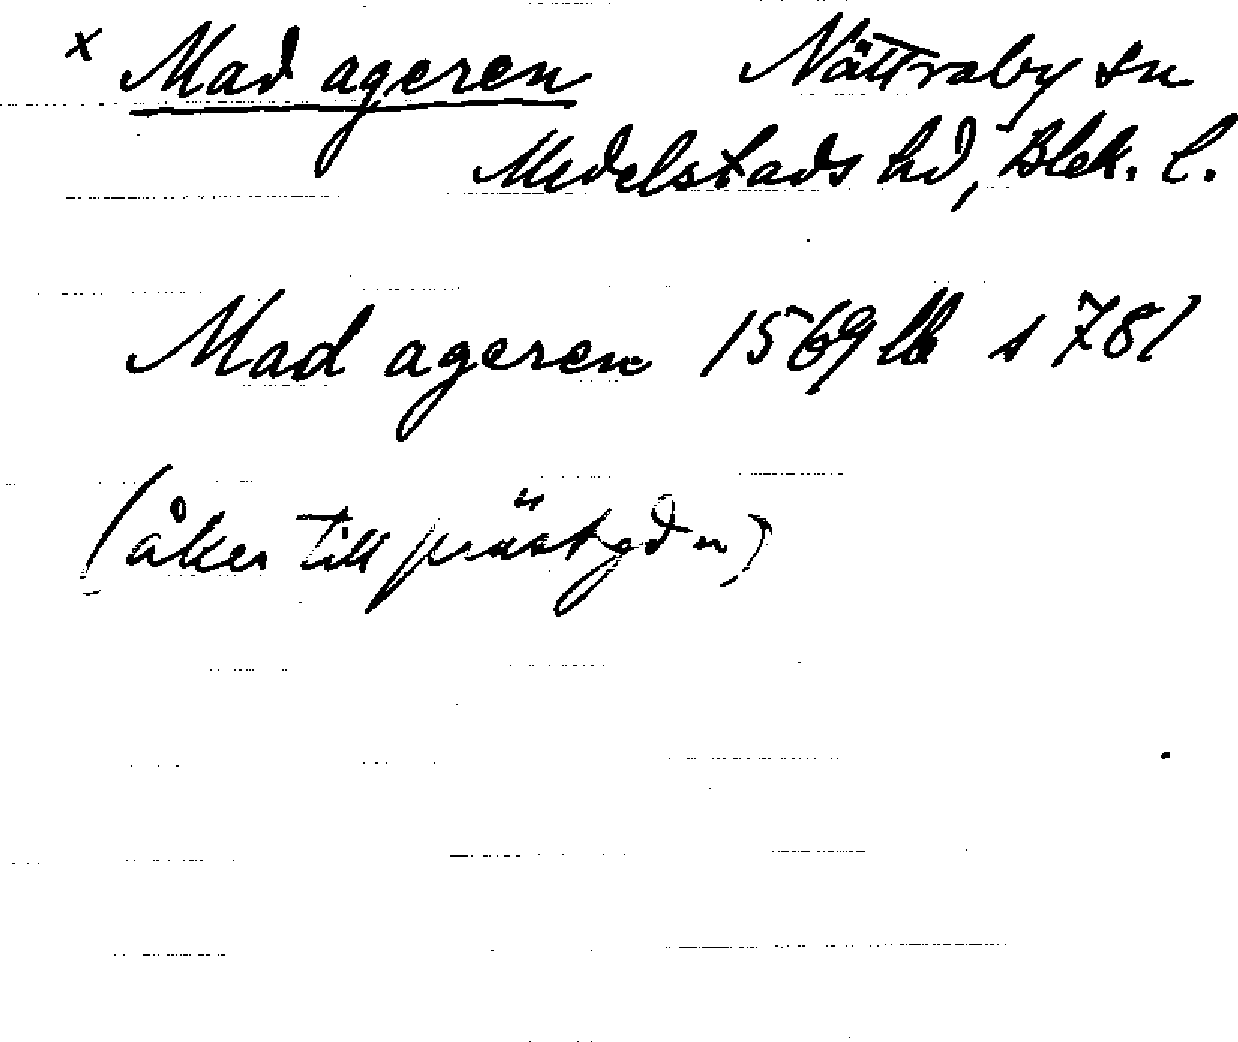 x Mad ageren Nättraby sn
Medelstads hd, Blek. l.
Mad ageren 1569 lb s 781
(åker till prästgdn)